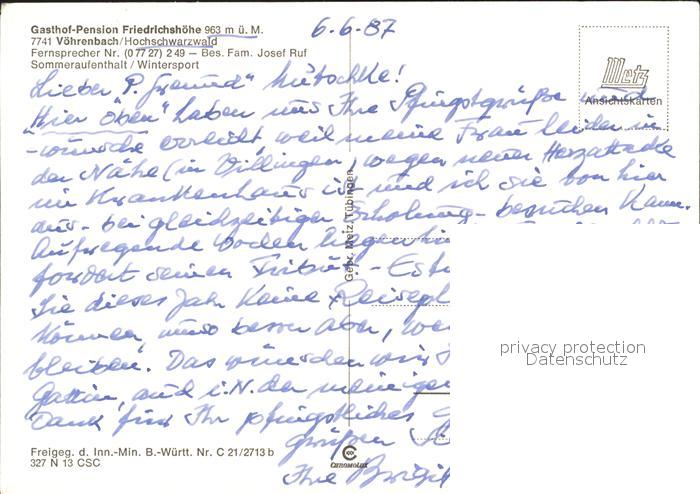 Gasthof-Pension Friedrichshöhe 963 m ü. M.
7741 Vöhrenbach/Hochschwarzwald
Fernsprecher Nr. (0 77 27) 2 49 — Bes. Fam. Josef Ruf
Sommeraufenthalt / Wintersport
6.6.87
Metz
Ansichtskarten
Lieber P. "Freund" Mutschke!
"Hier oben" haben uns Ihre Pfingstgrüße und
-wünsche erreicht, weil meine Frau leider in
der Nähe (in Villingen) wegen neuer Herzattacke
im Krankenhaus ist und ich sie von hier
aus - bei gleichzeitiger Erholung - besuchen kann.
Aufregende Wochen liegen hin
fordert seinen Tribut. - Es tu
Sie dieses Jahr keine Reisepl
können, umso besser aber, we
bleiben. Das wünschen wir
Gattin, auch i.N. der meinigen
Dank für Ihr pfingstliches G
grüßen
Ihre
Gebr. Metz, Tübingen
privacy protection
Datenschutz
Freigeg. d. Inn.-Min. B.-Württ. Nr. C 21/2713 b
327 N 13 CSC
CHROMOLUX